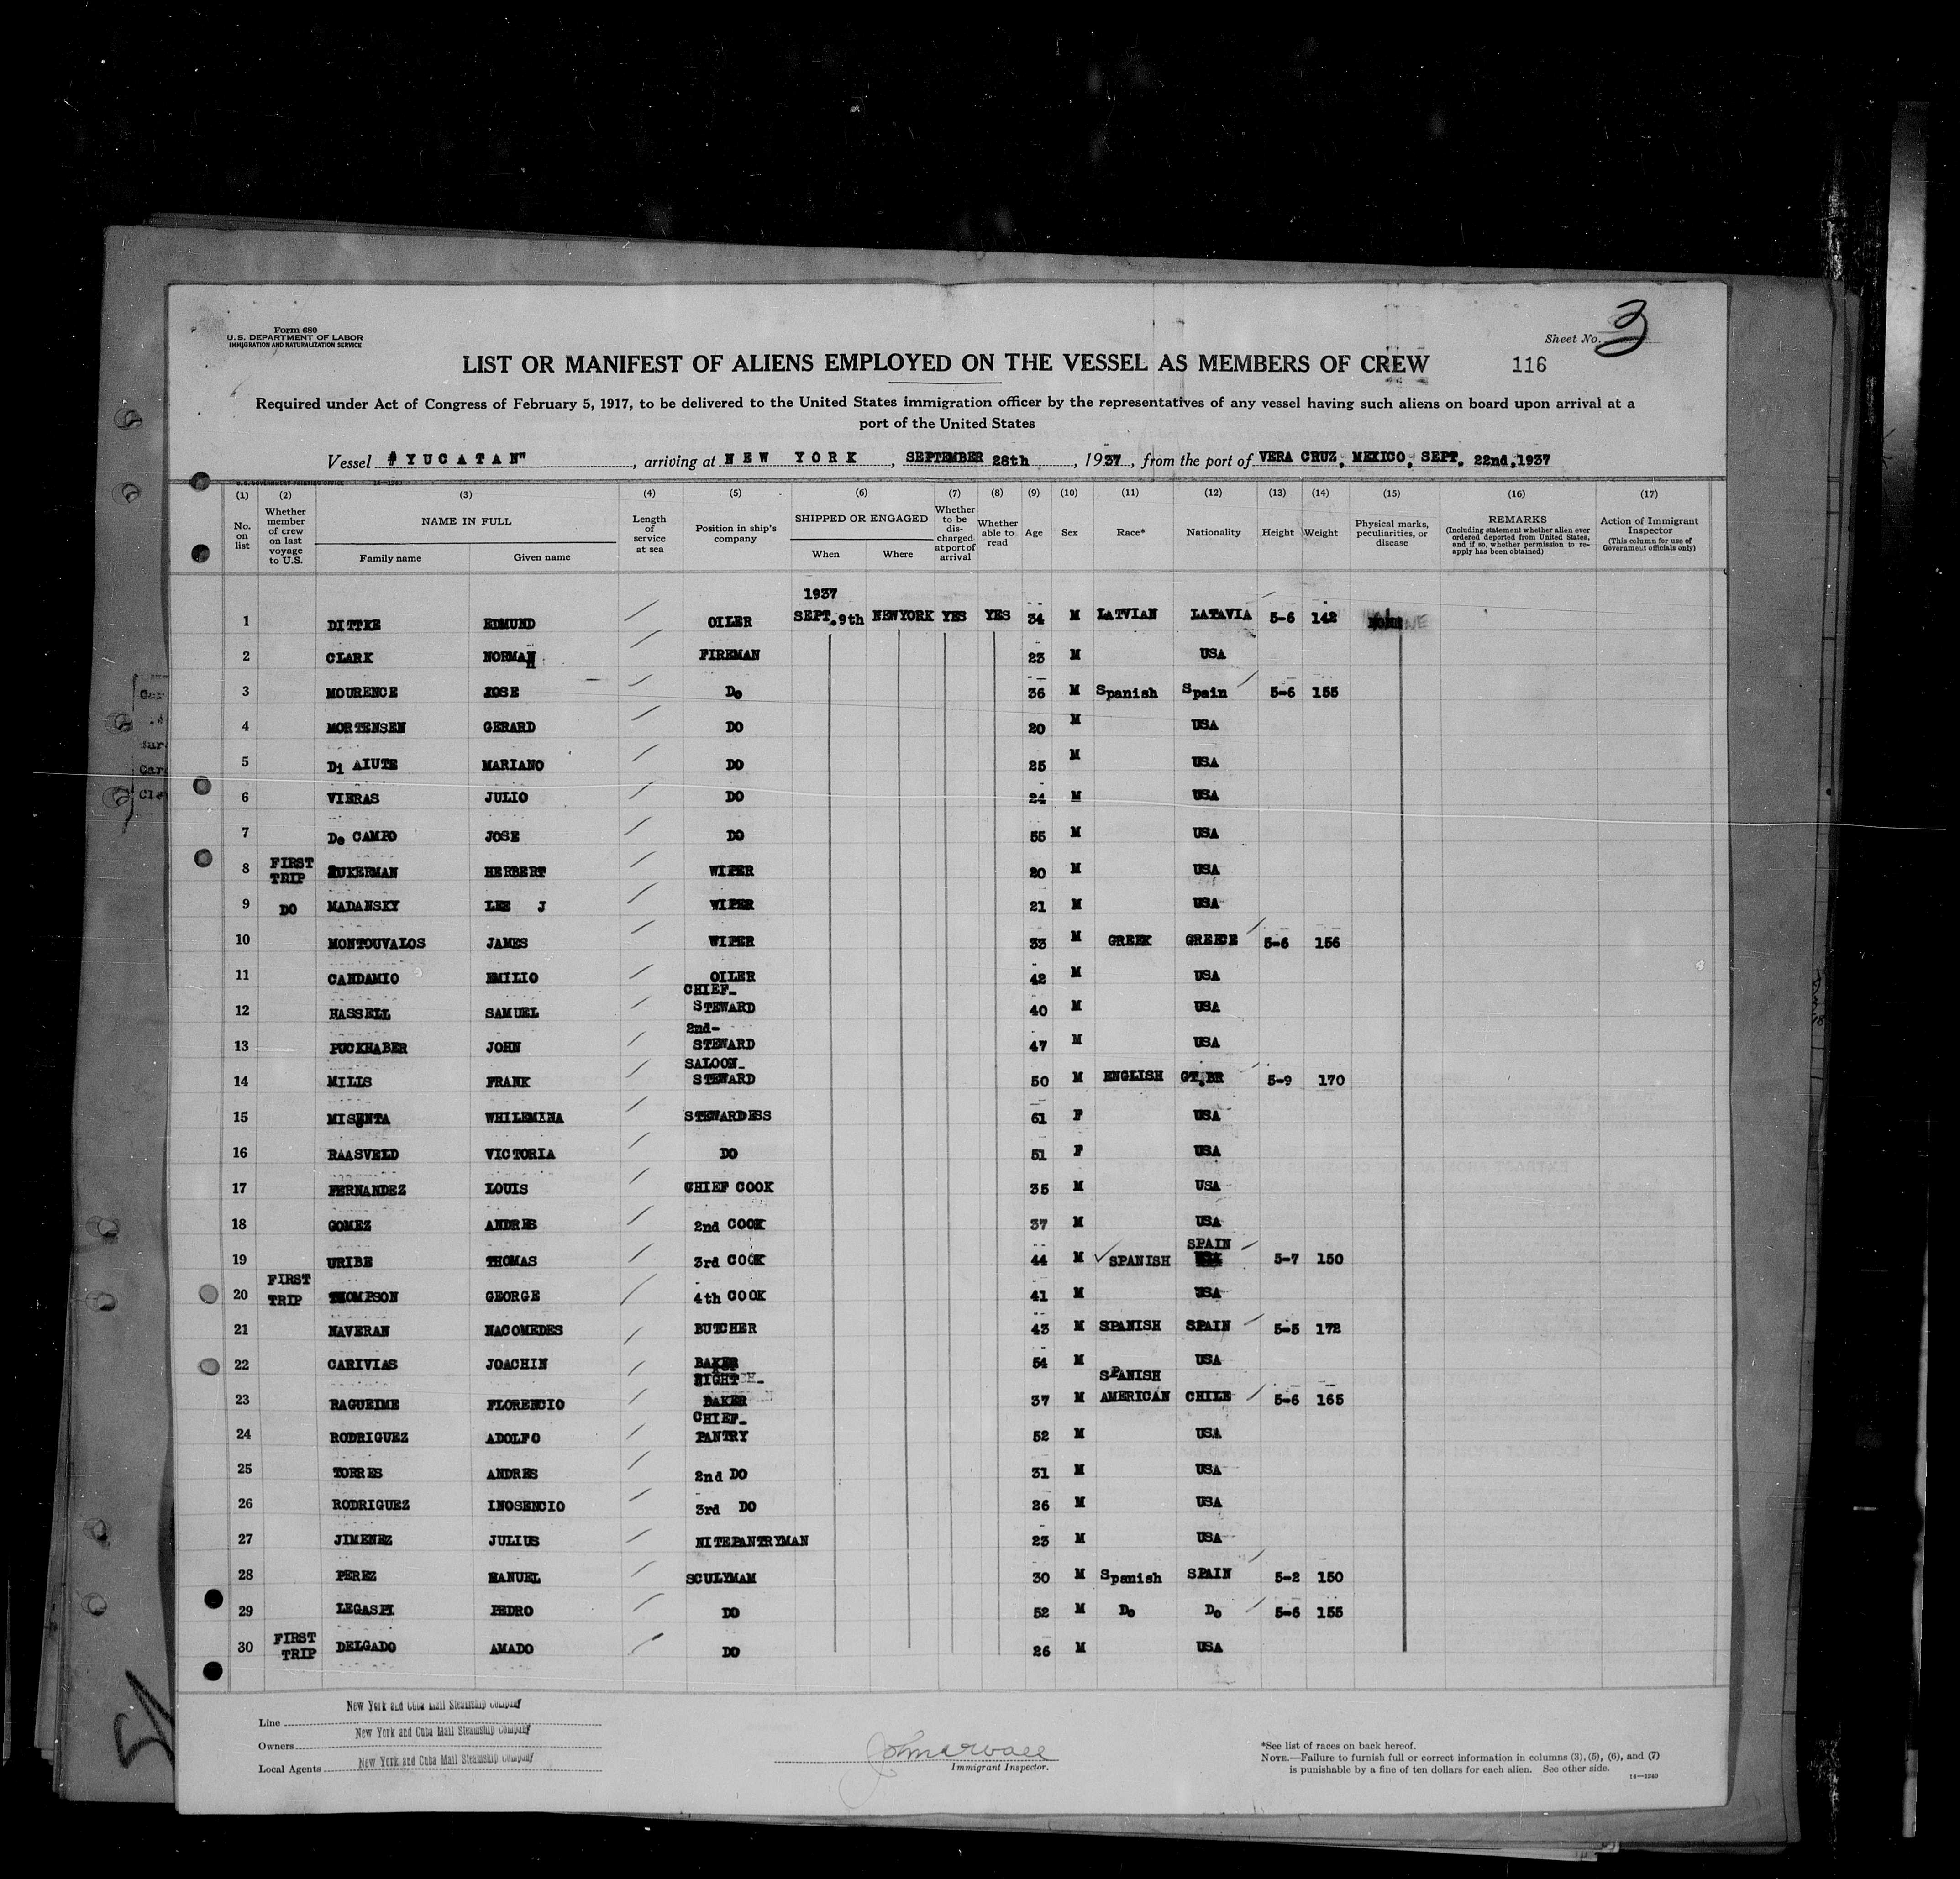 Form 680
U.S. DEPARTMENT OF LABOR
IMMIGRATION AND NATURALIZATION SERVICE
Sheet No. 3
LIST OR MANIFEST OF ALIENS EMPLOYED ON THE VESSEL AS MEMBERS OF CREW 116
Required under Act of Congress of February 5, 1917, to be delivered to the United States immigration officer by the representatives of any vessel having such aliens on board upon arrival at a
port of the United States
Vessel "YUCATAN", arriving at NEW YORK, SEPTEMBER 28th, 1937, from the port of VERA CRUZ, MEXICO, SEPT. 22nd,1937
U.S. GOVERNMENT PRINTING OFFICE
(1) (2) (3) (4) (5) (6) (7) (8) (9) (10) (11) (12) (13) (14) (15) (16) (17)
No. on list
Whether member of crew on last voyage to U.S.
NAME IN FULL
Family name Given name
Length of service at sea
Position in ship's company
SHIPPED OR ENGAGED
When Where
Whether to be discharged at port of arrival
Whether able to read
Age
Sex
Race*
Nationality
Height
Weight
Physical marks, peculiarities, or disease
REMARKS
(Including statement whether alien ever ordered deported from United States, and if so, whether permission to re-apply has been obtained)
Action of Immigrant Inspector
(This column for use of Government officials only)
1937
1 DITTKE EDMUND OILER SEPT.9th NEWYORK YES YES 34 M LATVIAN LATAVIA 5-6 142 NONE
2 CLARK NORMAN FIREMAN 23 M USA
3 MOURENCE JOSE Do 36 M Spanish Spain 5-6 155
4 MORTENSEN GERARD DO 20 M USA
5 Di AIUTE MARIANO DO 25 M USA
6 VIERAS JULIO DO 24 M USA
7 De CAMPO JOSE DO 55 M USA
8 FIRST TRIP ZUKERMAN HERBERT WIPER 20 M USA
9 DO MADANSKY LEE J WIPER 21 M USA
10 MONTOUVALOS JAMES WIPER 33 M GREEK GREECE 5-6 156
11 CANDAMIO EMILIO OILER 42 M USA
12 HASSELL SAMUEL CHIEF- STEWARD 40 M USA
13 PUCKHABER JOHN 2nd- STEWARD 47 M USA
14 MILLS FRANK SALOON- STEWARD 50 M ENGLISH GT.BR 5-9 170
15 MISENTA WHILEMINA STEWARDESS 61 F USA
16 RAASVELD VICTORIA DO 51 F USA
17 FERNANDEZ LOUIS CHIEF COOK 35 M USA
18 GOMEZ ANDRES 2nd COOK 37 M USA
19 URIBE THOMAS 3rd COOK 44 M SPANISH SPAIN USA 5-7 150
20 FIRST TRIP THOMPSON GEORGE 4th COOK 41 M USA
21 NAVERAN NACOMEDES BUTCHER 43 M SPANISH SPAIN 5-5 172
22 CARIVIAS JOACHIN BAKER 54 M USA
23 RAGUEIME FLORENCIO NIGHT- BAKER 37 M SPANISH AMERICAN CHILE 5-6 165
24 RODRIGUEZ ADOLFO CHIEF- PANTRY 52 M USA
25 TORRES ANDRES 2nd DO 31 M USA
26 RODRIGUEZ INOSENCIO 3rd DO 26 M USA
27 JIMENEZ JULIUS NITEPANTRYMAN 23 M USA
28 PEREZ MANUEL SCULYMAM 30 M Spanish SPAIN 5-2 150
29 LEGASPI PEDRO DO 52 M Do Do 5-6 155
30 FIRST TRIP DELGADO AMADO DO 26 M USA
Line New York and Cuba Mail Steamship Company
Owners New York and Cuba Mail Steamship Company
Local Agents New York and Cuba Mail Steamship Company
Immigrant Inspector.
*See list of races on back hereof.
NOTE.—Failure to furnish full or correct information in columns (3), (5), (6), and (7)
is punishable by a fine of ten dollars for each alien. See other side.